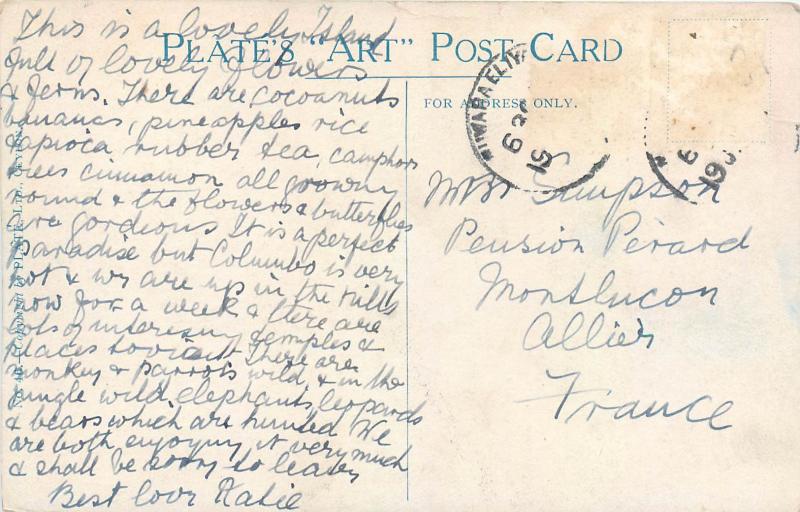 PLATE'S "ART" POST CARD
FOR ADDRESS ONLY.
This is a lovely Island
full of lovely flowers
& ferns. There are cocoanuts
bananas, pineapples rice
tapioca rubber tea, camphor
trees cinnamon all growing
round & the flowers & butterflies
are gordeous It is a perfect
paradise but Columbo is very
hot & we are up in the hills
now for a week & there are
lots of interesing temples &
places to visit There are
monkey & parrots wild, & in the
jungle wild elephants, leopards
& bears which are hunted We
are both enjoying it very much
& shall be sorry to leave
Best love Katie
NUWARA ELIYA
Simpson
Pension Perard
Montlucon
Allier
France
PLATE LTD., CEYLON